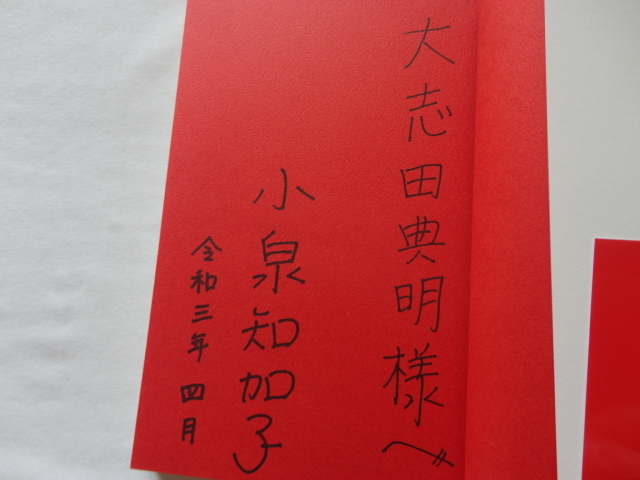 大志田典明様へ〃
小泉知加子
令和三年 四月